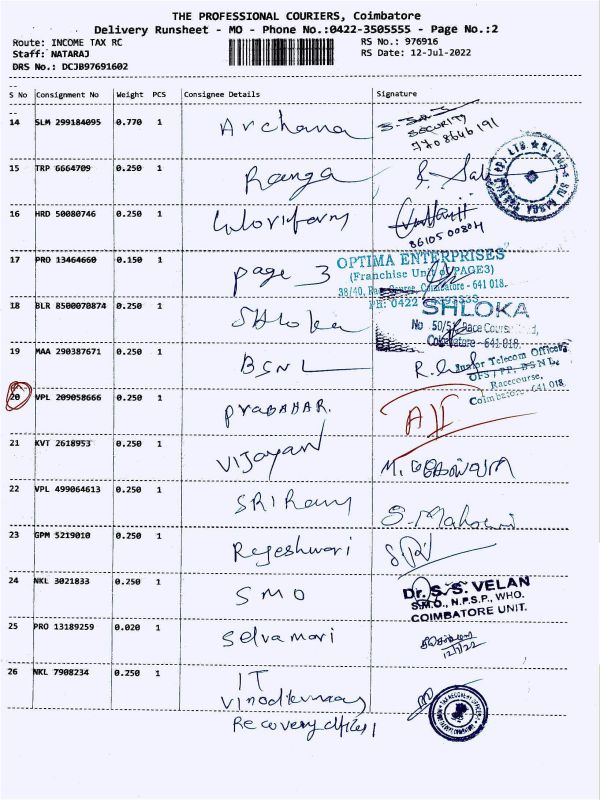 THE PROFESSIONAL COURIERS, Coimbatore
Delivery Runsheet - MO - Phone No.:0422-3505555 - Page No.:2
Route: INCOME TAX RC
RS No.: 976916
Staff: NATARAJ
RS Date: 12-Jul-2022
DRS No.: DCJB97691602
S No Consignment No Weight PCS Consignee Details Signature
14 SLM 299184095 0.770 1 Archana
SECURITY
15 TRP 6664709 0.250 1 Ranga
16 HRD 50080746 0.250 1
17 PRO 13464660 0.150 1 page 3
OPTIMA ENTERPRISES
(Franchise Unit of PAGE3)
38/40, Race Course, Coimbatore - 641 018.
PH: 0422
18 BLR 8500070874 0.250 1 Shloka
SHLOKA
No 50/5, Race Course
Coimbatore - 641 018.
19 MAA 290387671 0.250 1 BSNL
Junior Telecom Officer
BSNL
Racecourse,
Coimbatore - 641 018
20 VPL 209058666 0.250 1 PRABAHAR.
21 KVT 2618953 0.250 1 Vijayan
22 VPL 499064613 0.250 1 SRI Ram
23 GPM 5219010 0.250 1 Rajeshwari
24 NKL 3021833 0.250 1 SMO
Dr. S. S. VELAN
S.M.O., N.P.S.P., WHO.
COIMBATORE UNIT.
25 PRO 13189259 0.020 1 Selvamari
12/7/22
26 NKL 7908234 0.250 1 IT
Recovery officer 1